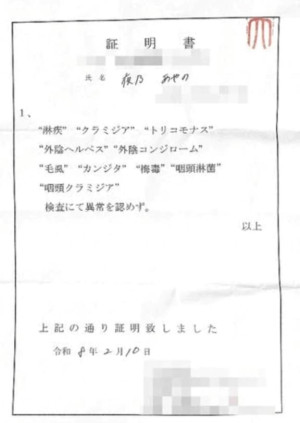 証明書
氏名 夜乃 あやの
1、
"淋疾" "クラミジア" "トリコモナス"
"外陰ヘルペス" "外陰コンジローム"
"毛虱" "カンジタ" "梅毒" "咽頭淋菌"
"咽頭クラミジア"
検査にて異常を認めず。
以上
上記の通り証明致しました
令和 8年 2月 10日